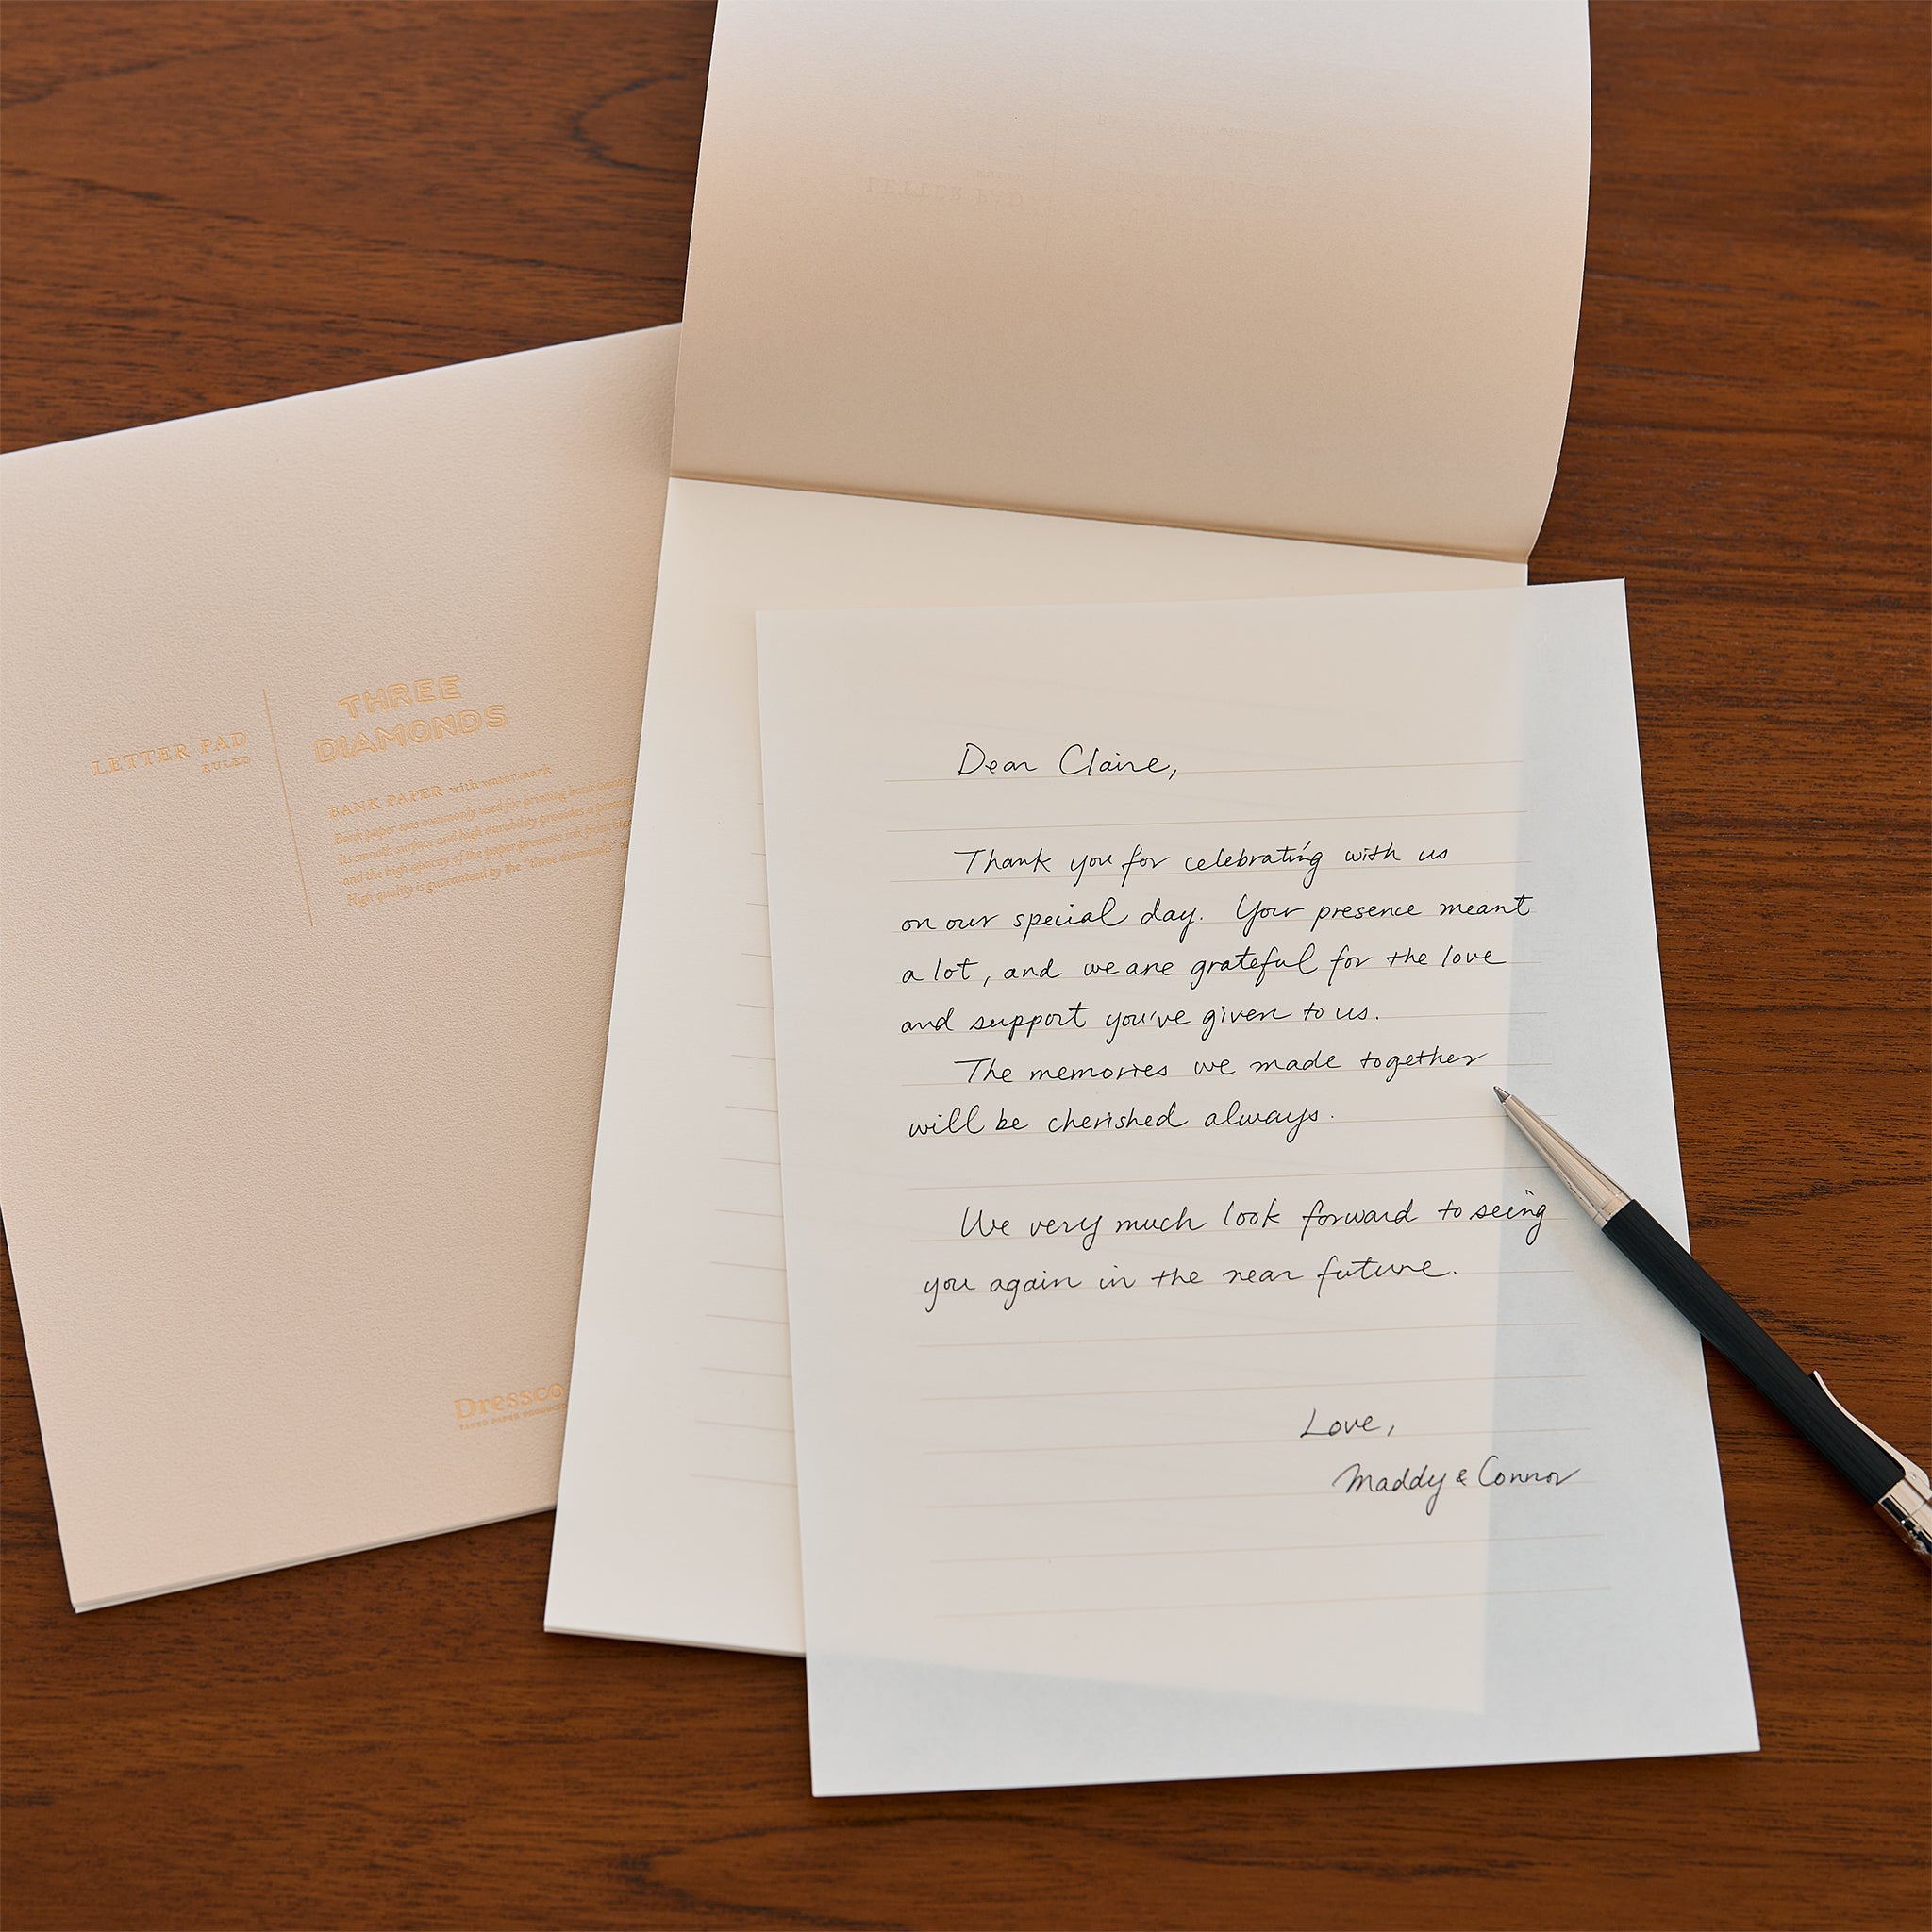 LETTER PAD
RULED
THREE
DIAMONDS
BANK PAPER with watermark
Bank paper was commonly used for printing bank
Its smooth surface and high durability provides a
and the high opacity of the paper prevents ink from
High quality is guaranteed by the "three diamonds"
Dressco
Dear Claire,
Thank you for celebrating with us
on our special day. Your presence meant
a lot, and we are grateful for the love
and support you've given to us.
The memories we made together
will be cherished always.
We very much look forward to seeing
you again in the near future.
Love,
Maddy & Connor